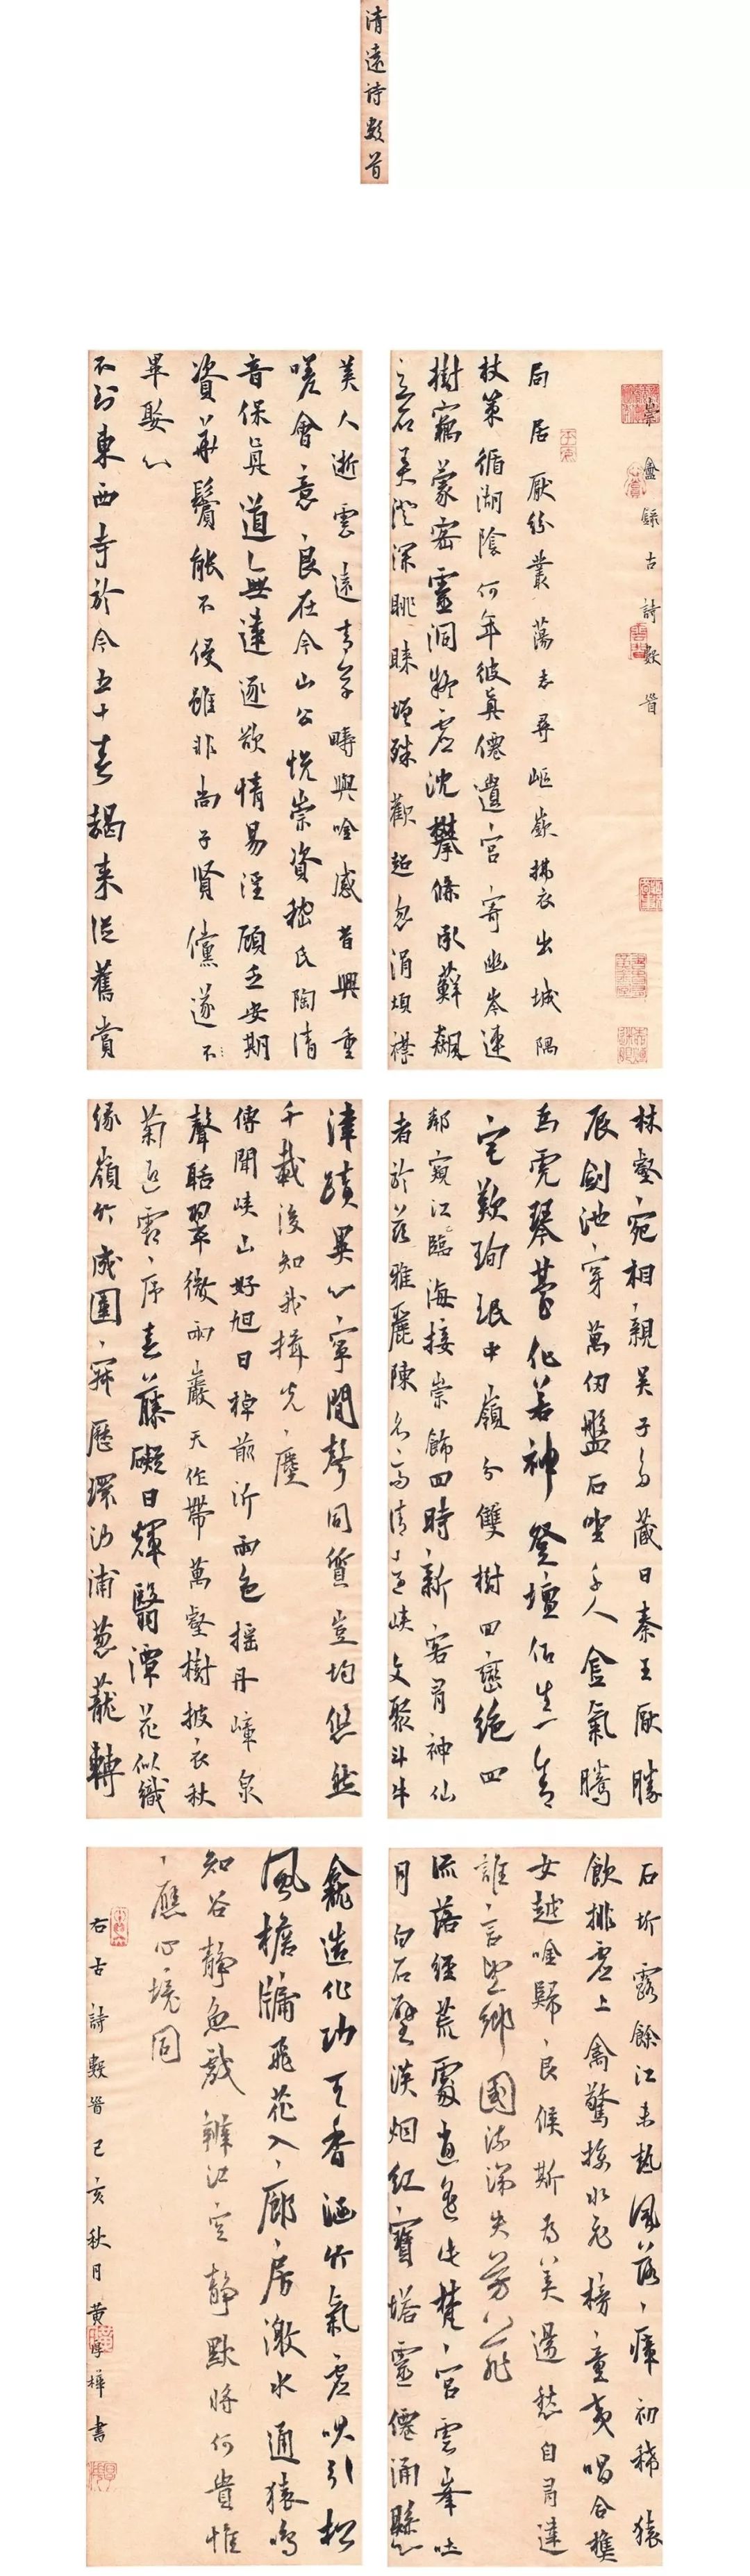 清遠詩數首
崇龕録古詩數首
局居厭紛叢蕩志尋嶇嶔拂衣出城隅
杖策循湖陰何年彼真僊遺宫寄幽岑連
樹竊蒙密靈洞凝虚沈攀條承蘚飆
立石美澄深眺睞境殊歡超忽涓煩襟
美人逝雲遠青草疇與吟感昔興重
嗟會意良在今山公悦崇資嵇氏陶清
音保真道乚無違逐欲情易淫顧乏安期
資華鬢能不侵雖非尚子賢儻遂不
畢娶心
不到東西寺於今五十春朅来從舊賞
林壑宛相親吴子多藏日秦王厭勝
辰劍池穿萬仞盤石坐千人金氣騰
為虎琴臺化若神登壇仰生一舍
宅歎珣珉中嶺分雙樹回巒絶四
鄰窺江臨海接崇飾四時新客有神仙
者於兹雅麗陳名高清遠峽文聚斗牛
津蹟異心寧間聲同質豈均悠然
千載後知我揖光塵
傳聞峡山好旭日棹前沂雨色摇丹嶂泉
聲聒翠微兩巖天作帶萬壑樹披衣秋
菊迎霜序春藤礙日輝翳潭花似織
緣嶺竹成圍寂歷環沙浦葱蘢轉
石圻露餘江未熱風落瘴初稀猿
飲排虚上禽驚掠水飛榜童夷唱合樵
女越吟歸良候斯為美邊愁自有違
誰言望鄉國流涕失芳菲
流落經荒處逍遥此梵宫雲峯吐
月白石壁淡烟紅寳塔靈僊涌懸
龕造化功天香涵竹氣虚唄引松
風檐牖飛花入廊房激水通猿鳴
知谷静魚戲辨江空静默將何貴惟
應心境同
右古詩數首己亥秋月黄厚樺書